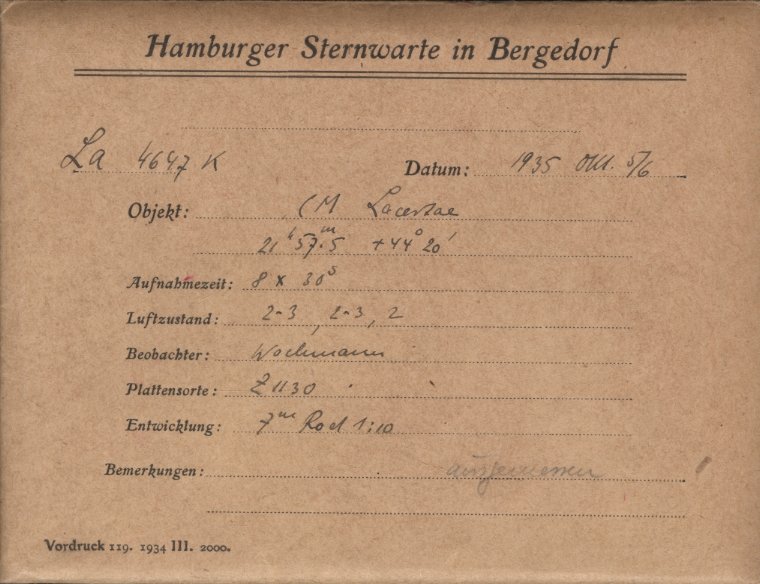 Hamburger Sternwarte in Bergedorf
La 4647 K Datum: 1935 Okt. 5/6
Objekt: CM Lacertae
21ʰ 57ᵐ.5 +44° 20'
Aufnahmezeit: 8 x 30ˢ
Luftzustand: 2-3, 2-3, 2
Beobachter: Wachmann
Plattensorte: Z 1130
Entwicklung: 7ᵐ Rod 1:10
Bemerkungen: ausgemessen
Vordruck 119. 1934 III. 2000.